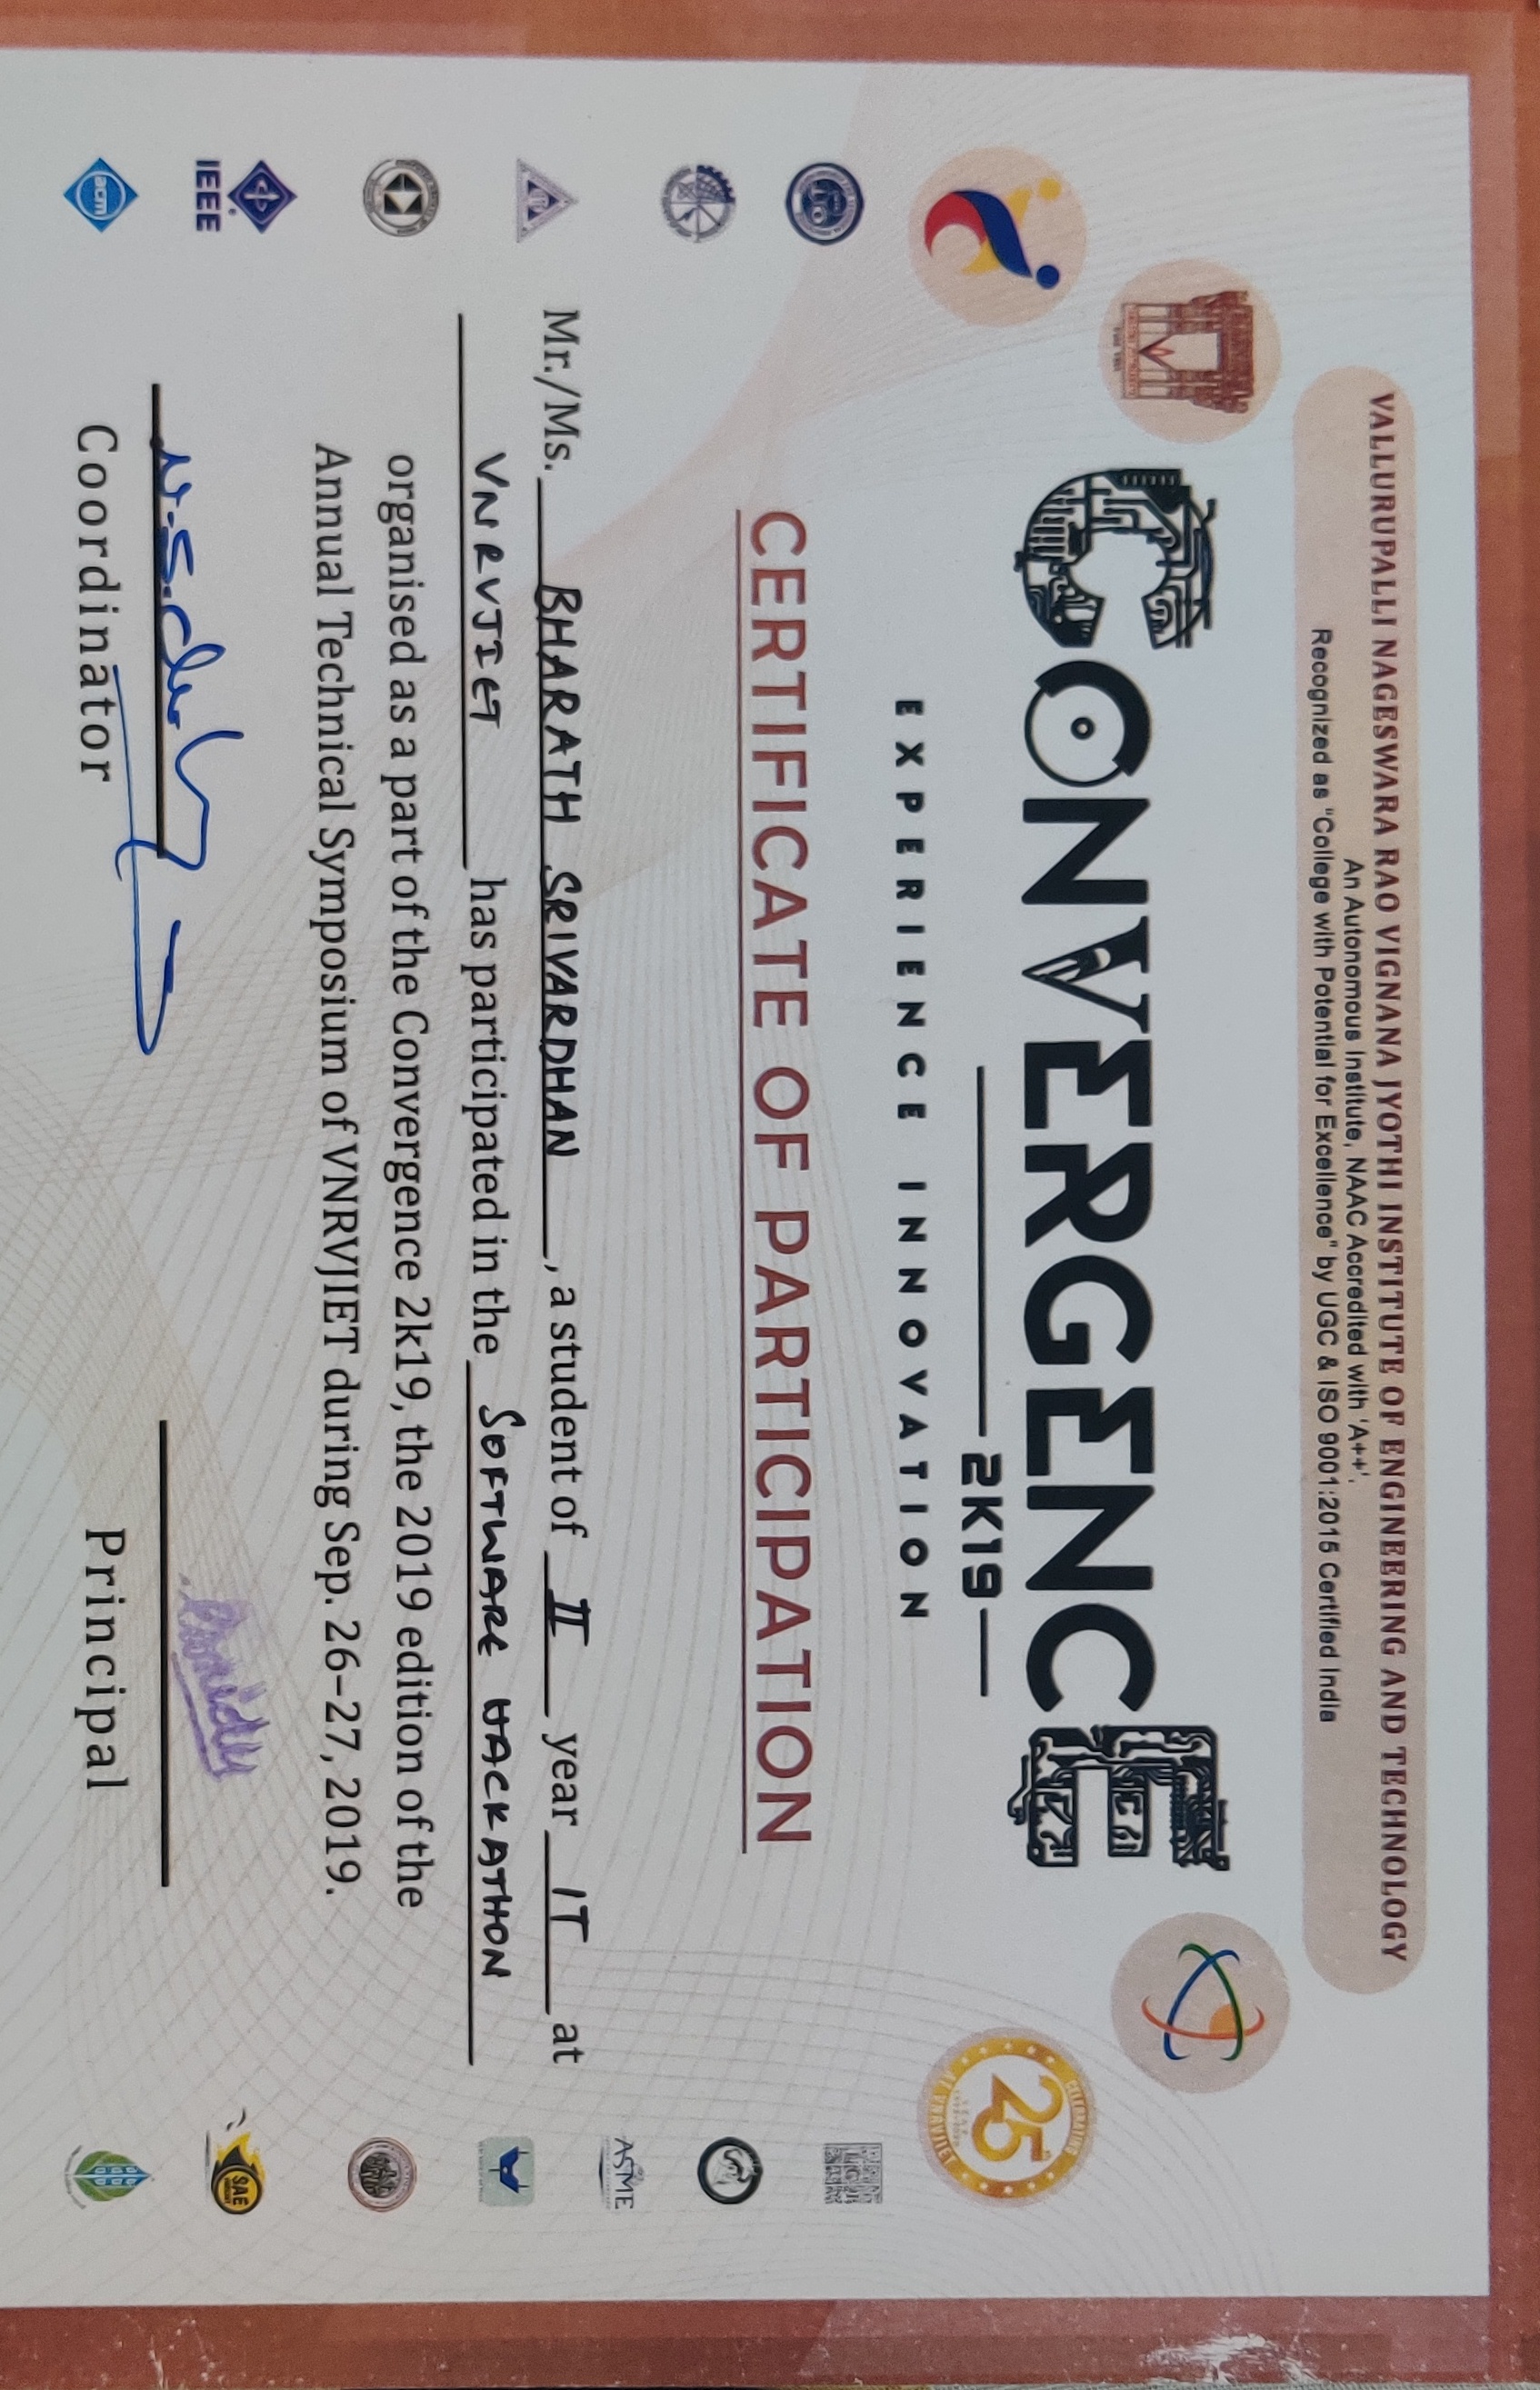 VALLURUPALLI NAGESWARA RAO VIGNANA JYOTHI INSTITUTE OF ENGINEERING AND TECHNOLOGY
An Autonomous Institute, NAAC Accredited with 'A++',
Recognized as "College with Potential for Excellence" by UGC & ISO 9001:2015 Certified India
CONVERGENCE
2K19
EXPERIENCE INNOVATION
25
CERTIFICATE OF PARTICIPATION
Mr./Ms. BHARATH SRIVARDHAN, a student of II year IT at
VNRVJIET has participated in the SOFTWARE HACKATHON
organised as a part of the Convergence 2k19, the 2019 edition of the
Annual Technical Symposium of VNRVJIET during Sep. 26-27, 2019.
Coordinator
Principal
IEEE
acm
ASME
SAE